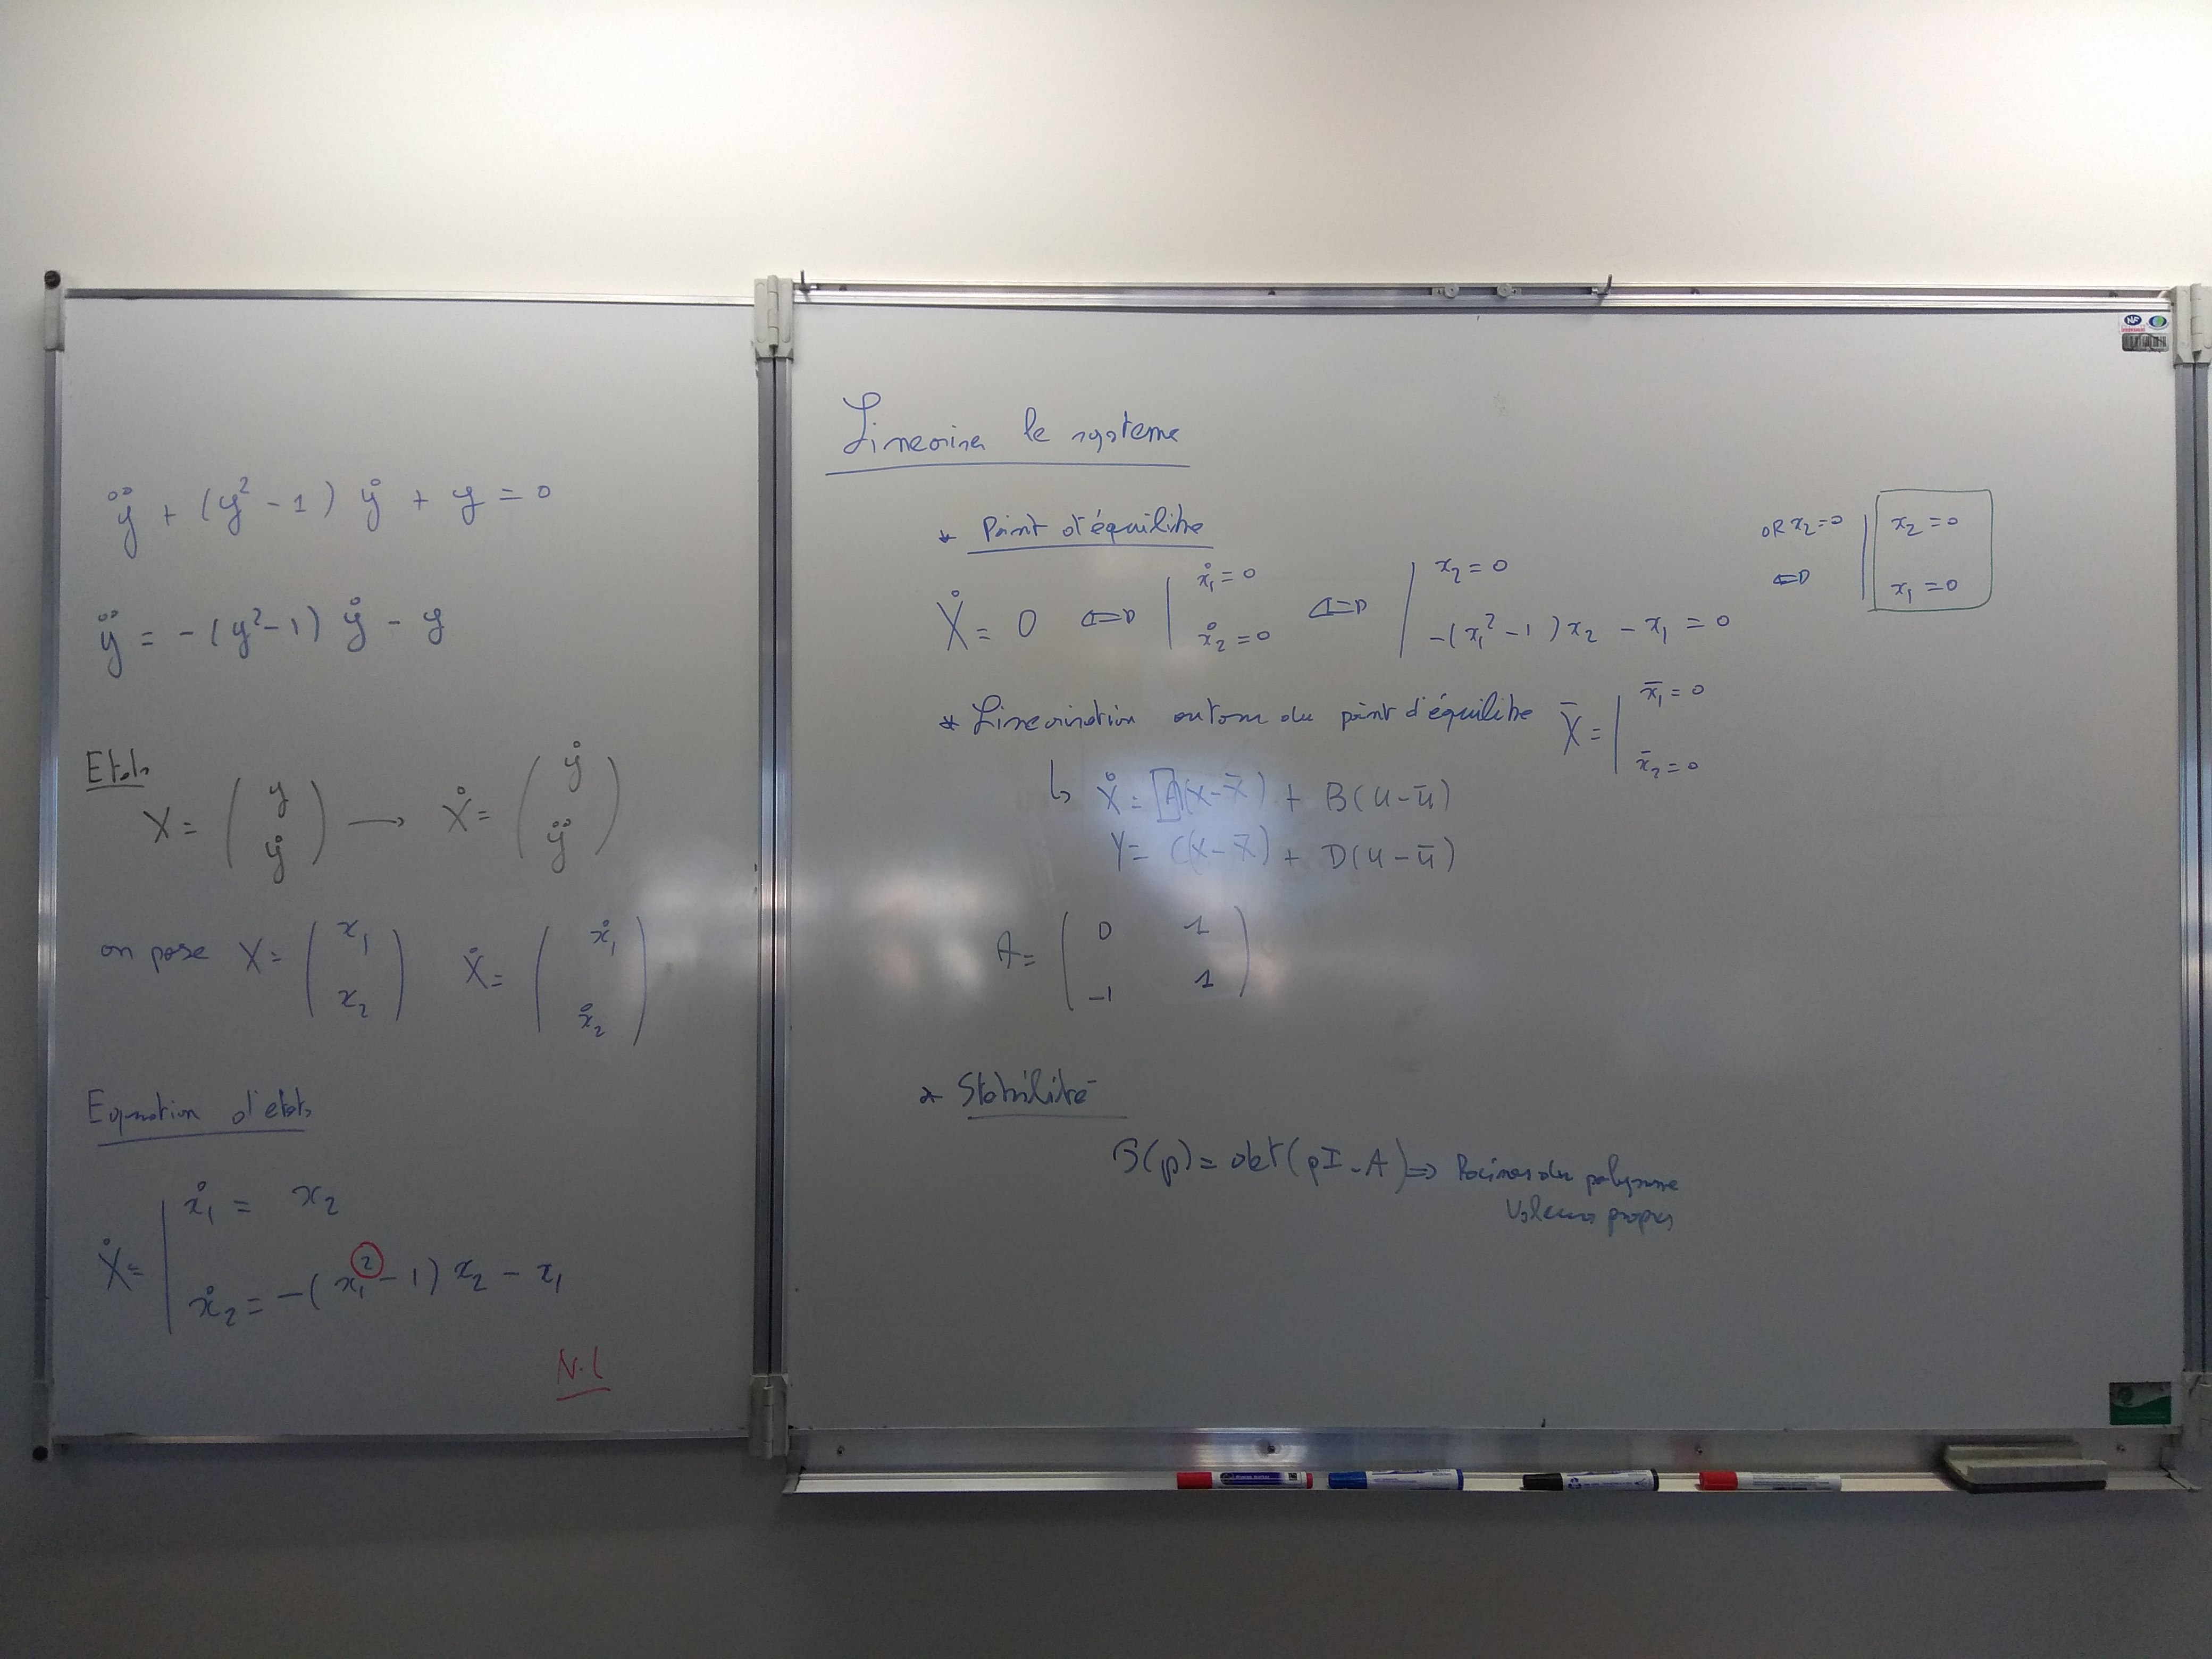 ÿ + (y² - 1) ẏ + y = 0
ÿ = -(y² - 1) ẏ - y
Etats
X = ( y ẏ ) → Ẋ = ( ẏ ÿ )
on pose X = ( x₁ x₂ ) Ẋ = ( ẋ₁ ẋ₂ )
Equation d'etats
Ẋ = | ẋ₁ = x₂
ẋ₂ = -(x₁² - 1) x₂ - x₁
N.L
Lineariser le systeme
* Point d'équilibre
Ẋ = 0 ⇔ | ẋ₁ = 0 ẋ₂ = 0 ⇔ | x₂ = 0 -(x₁² - 1) x₂ - x₁ = 0 OR x₂ = 0 ⇔ | x₂ = 0 x₁ = 0
* Linearisation autour du point d'équilibre X̄ = | x̄₁ = 0 x̄₂ = 0
↳ Ẋ = A(X - X̄) + B(u - ū)
Y = C(X - X̄) + D(u - ū)
A = ( 0 1
-1 1 )
* Stabilité
(p) = det(pI - A) ⇒ Racines du polynome
Valeurs propres